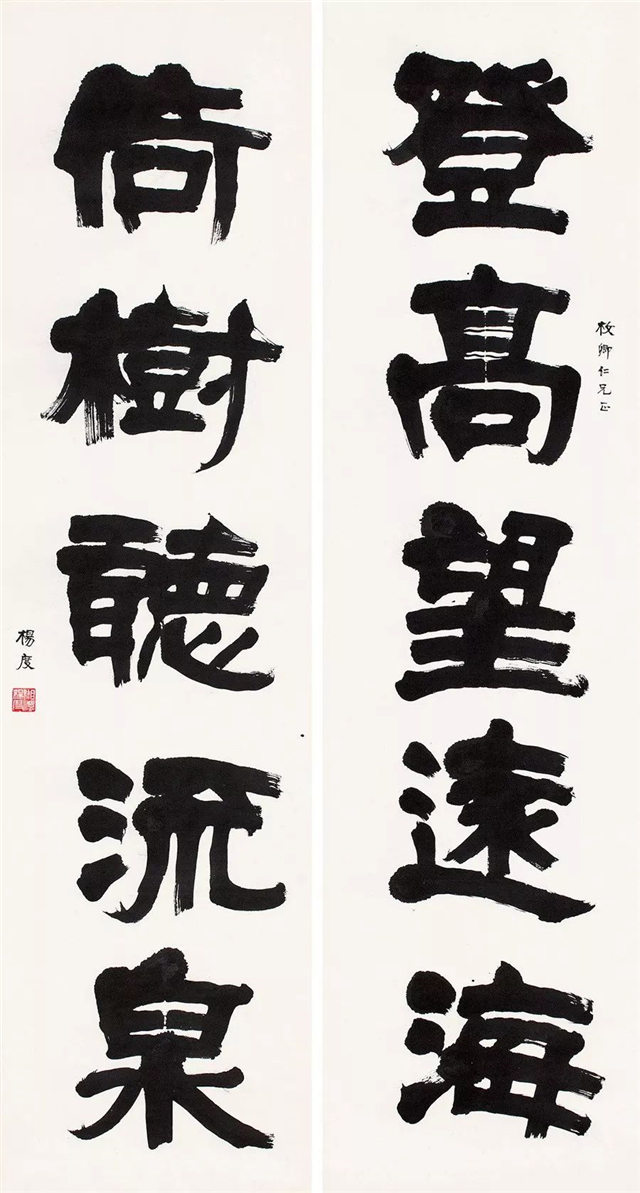 登高望遠海
倚樹聽流泉
仁兄正
楊度